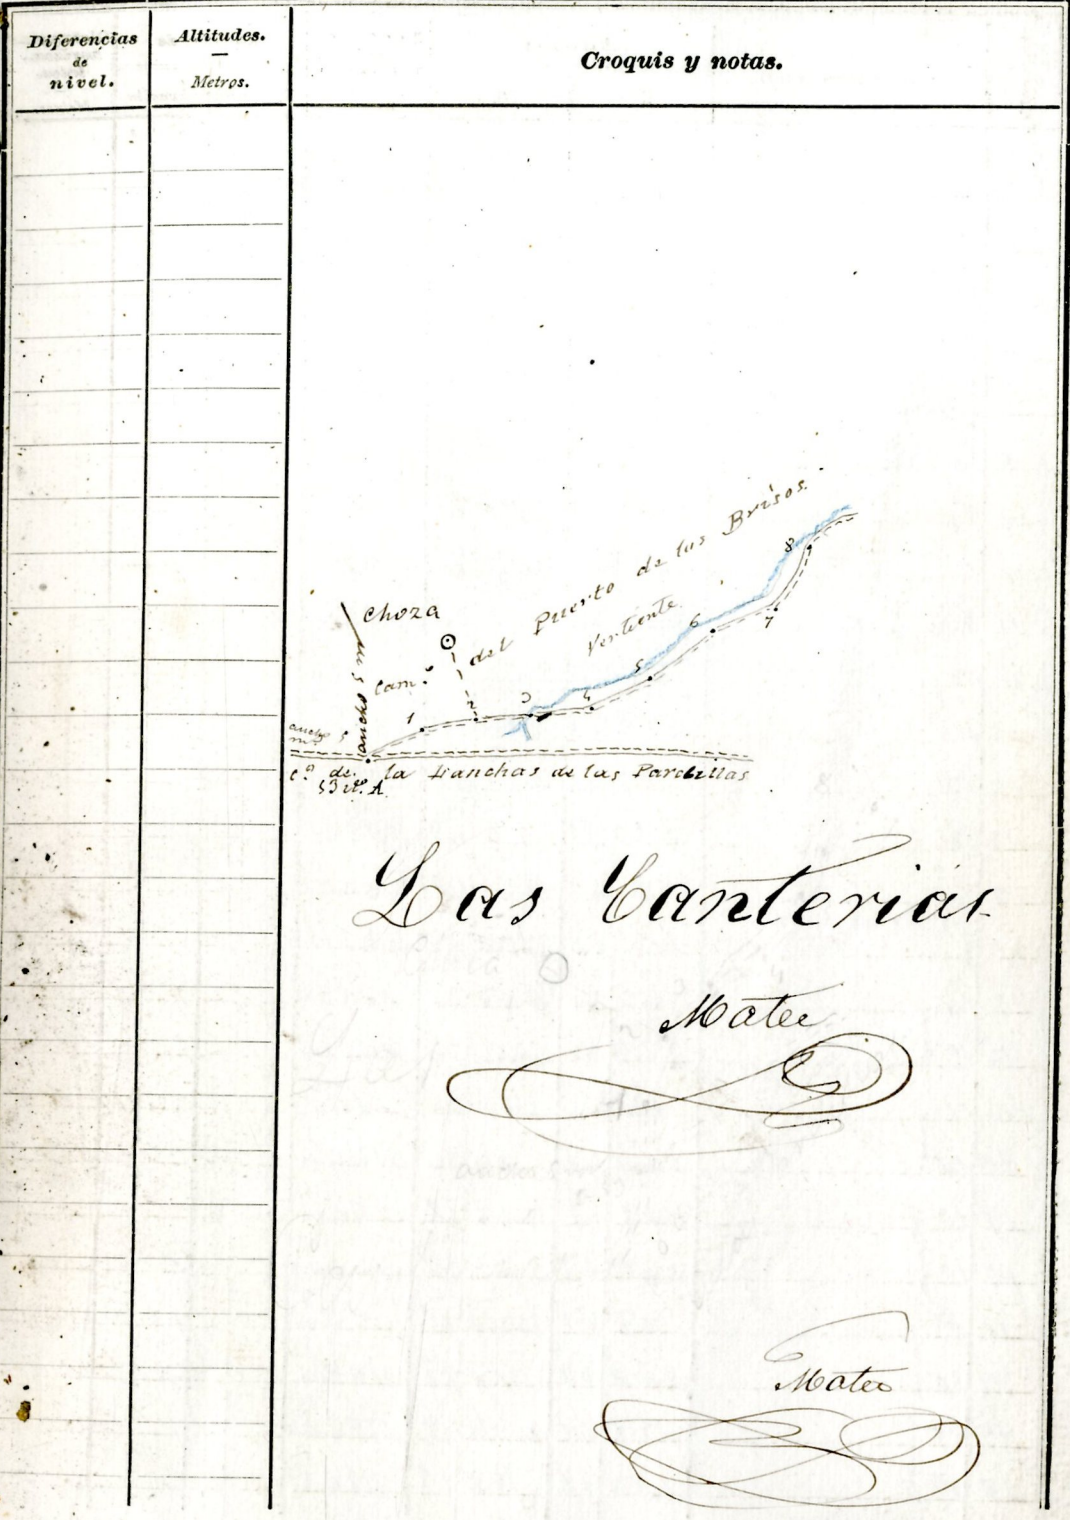 Diferencias
de
nivel.
Altitudes.
Metros.
Croquis y notas.
Choza
ancho 5 m
Cam.º del Puerto de los Brisos.
Vertiente
1 2 3 4 5 6 7 8
ancho 5
m.
C.º de la Lanchas de las Pardillas
Las Canterias
Mateo
Mateo